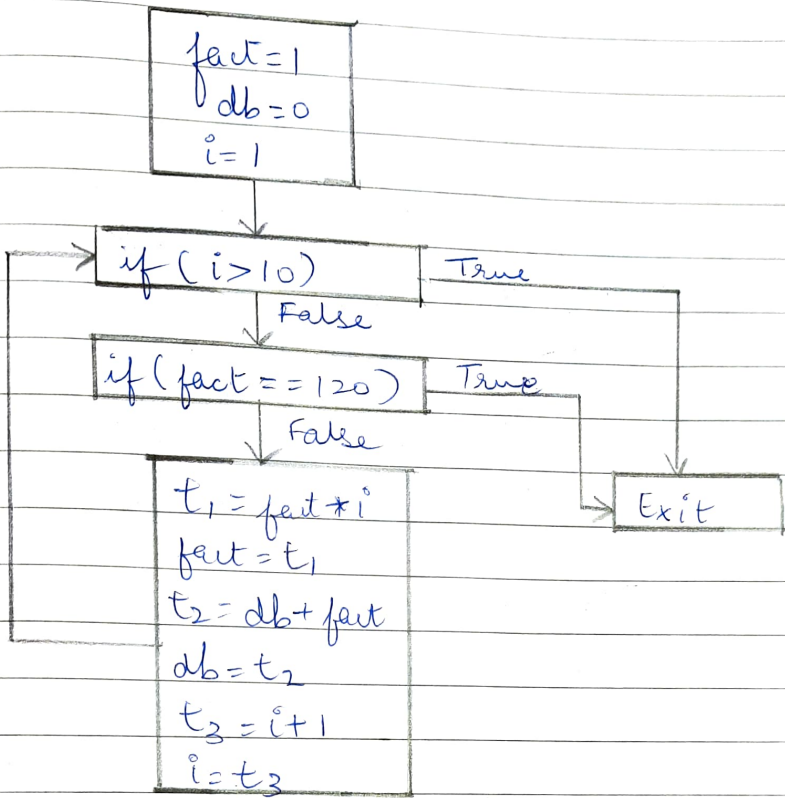 fact=1
db=0
i=1
if(i>10)
True
False
if(fact==120)
True
False
t₁=fact*i
fact=t₁
t₂=db+fact
db=t₂
t₃=i+1
i=t₃
Exit